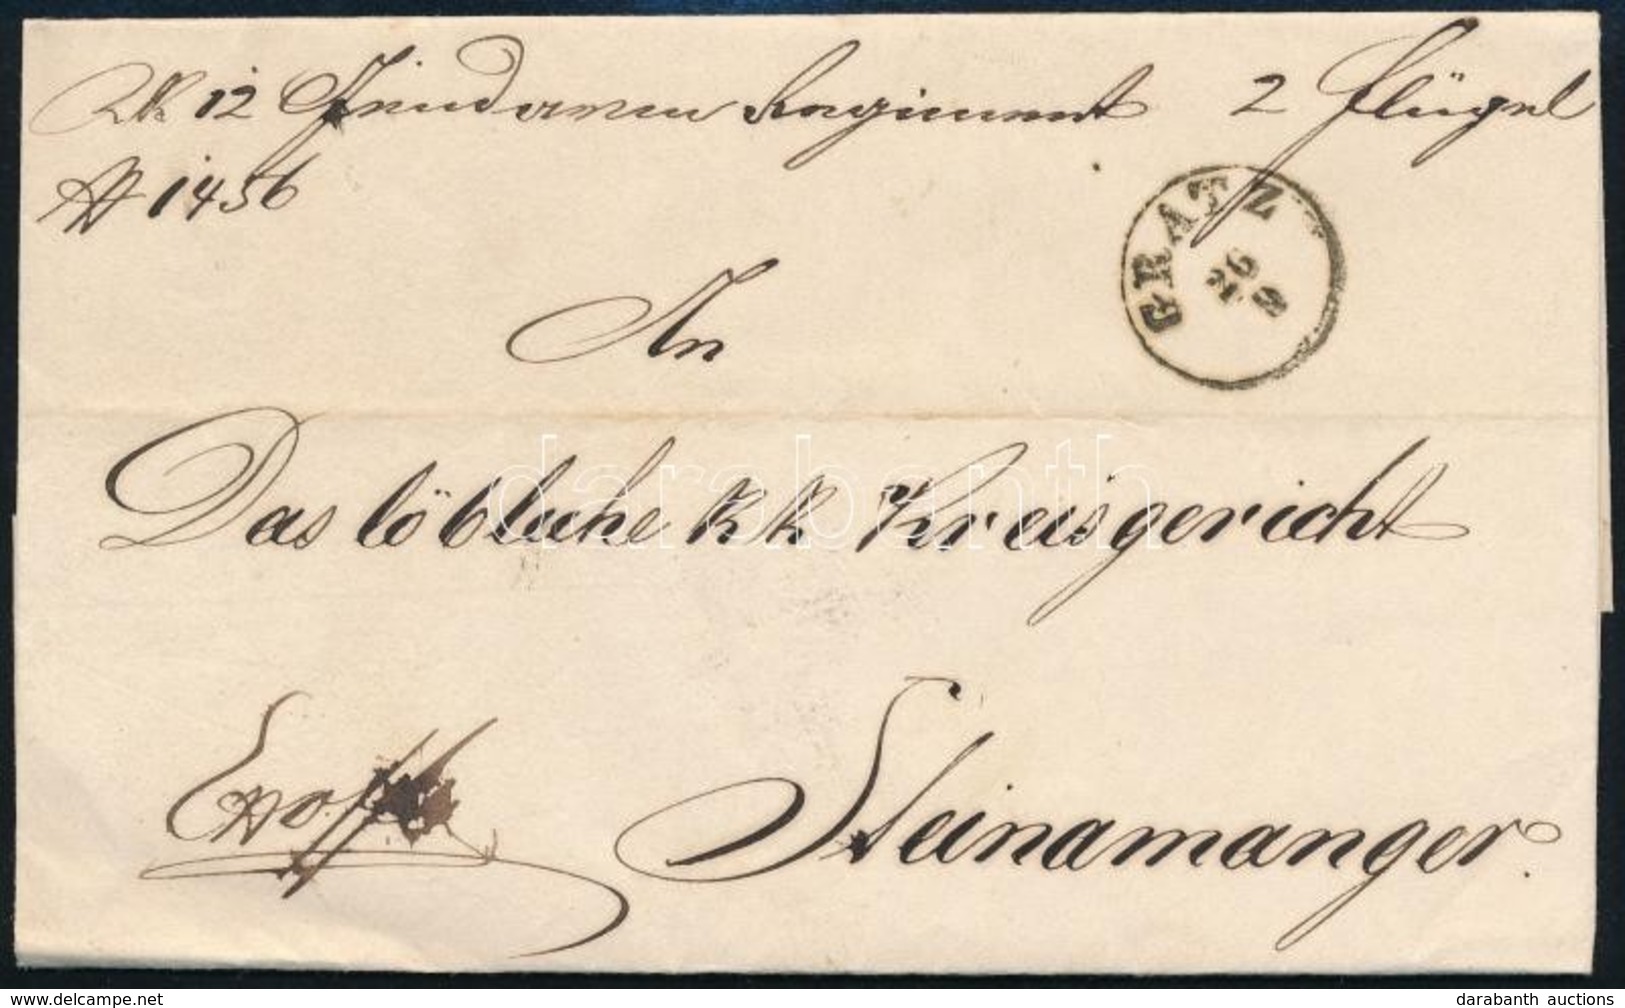 KK 12 Gendarmerie Regiment 2 Flügel
№ 1456
GRATZ
26
An
Das löbliche KK Kreisgericht
darabanth
Steinamanger.
delcampe.net
darabanth auctions